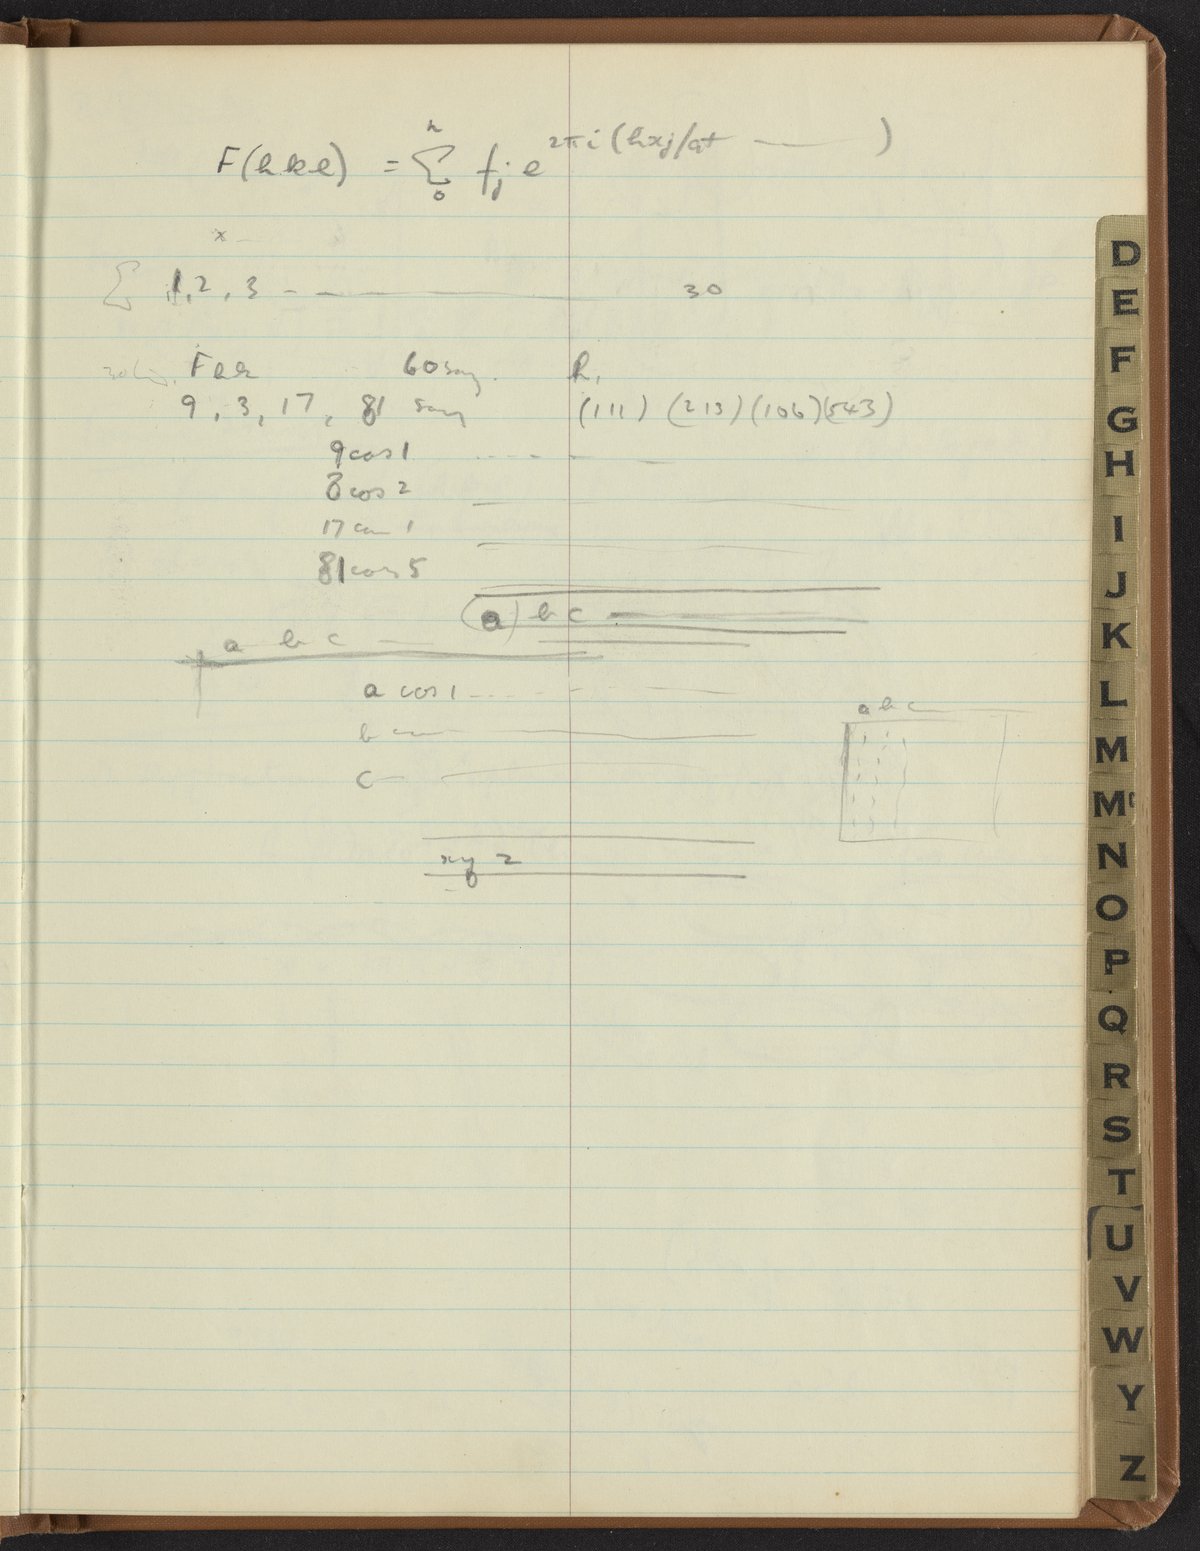 F(hkl) = Σ n 0 fj e 2πi (hxj/a+ —— )
x
Σ 1, 2, 3 — —— 30
Fhk 60 say. h,
9, 3, 17, 81 say (111) (213) (106) (543)
9 cos 1
3 cos 2
17 cos 1
81 cos 5
(a) b c
a b c
a cos 1
a b c
b
c
xyz
D
E
F
G
H
I
J
K
L
M
Mc
N
O
P
Q
R
S
T
U
V
W
Y
Z